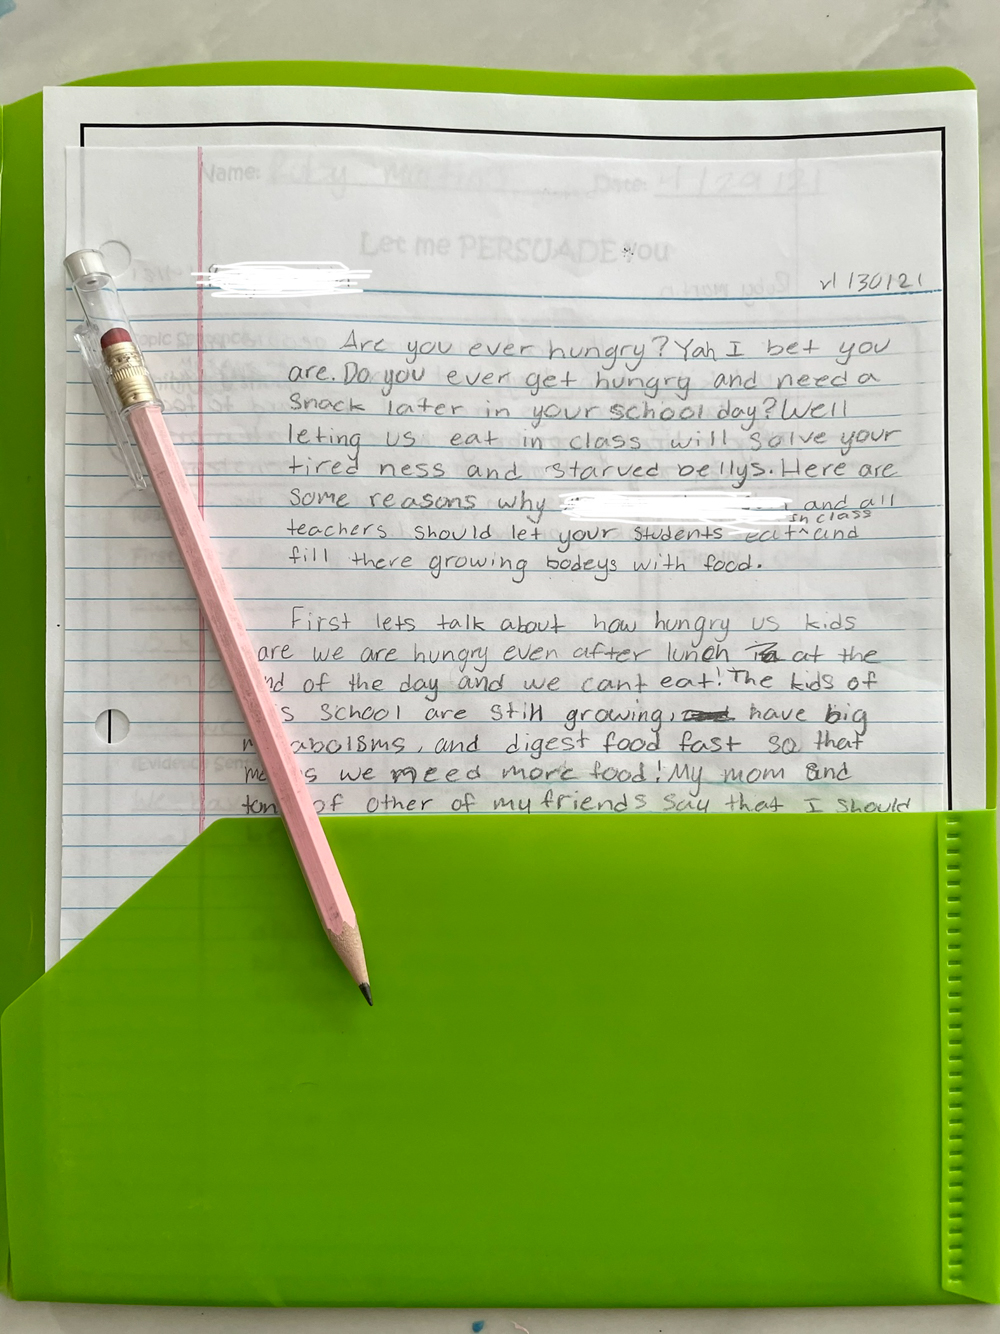 Name:
Date: 4/29/21
Let me PERSUADE you
4/30/21
Are you ever hungry? Yah I bet you
are. Do you ever get hungry and need a
snack later in your school day? Well
leting us eat in class will solve your
tired ness and starved bellys. Here are
some reasons why and all
in class
teachers should let your students eat ^ and
fill there growing bodeys with food.
First lets talk about how hungry us kids
are we are hungry even after lunch at the
nd of the day and we cant eat! The kids of
s school are still growing, have big
m abolsms, and digest food fast so that
me s we need more food! My mom and
ton of other of my friends say that I should